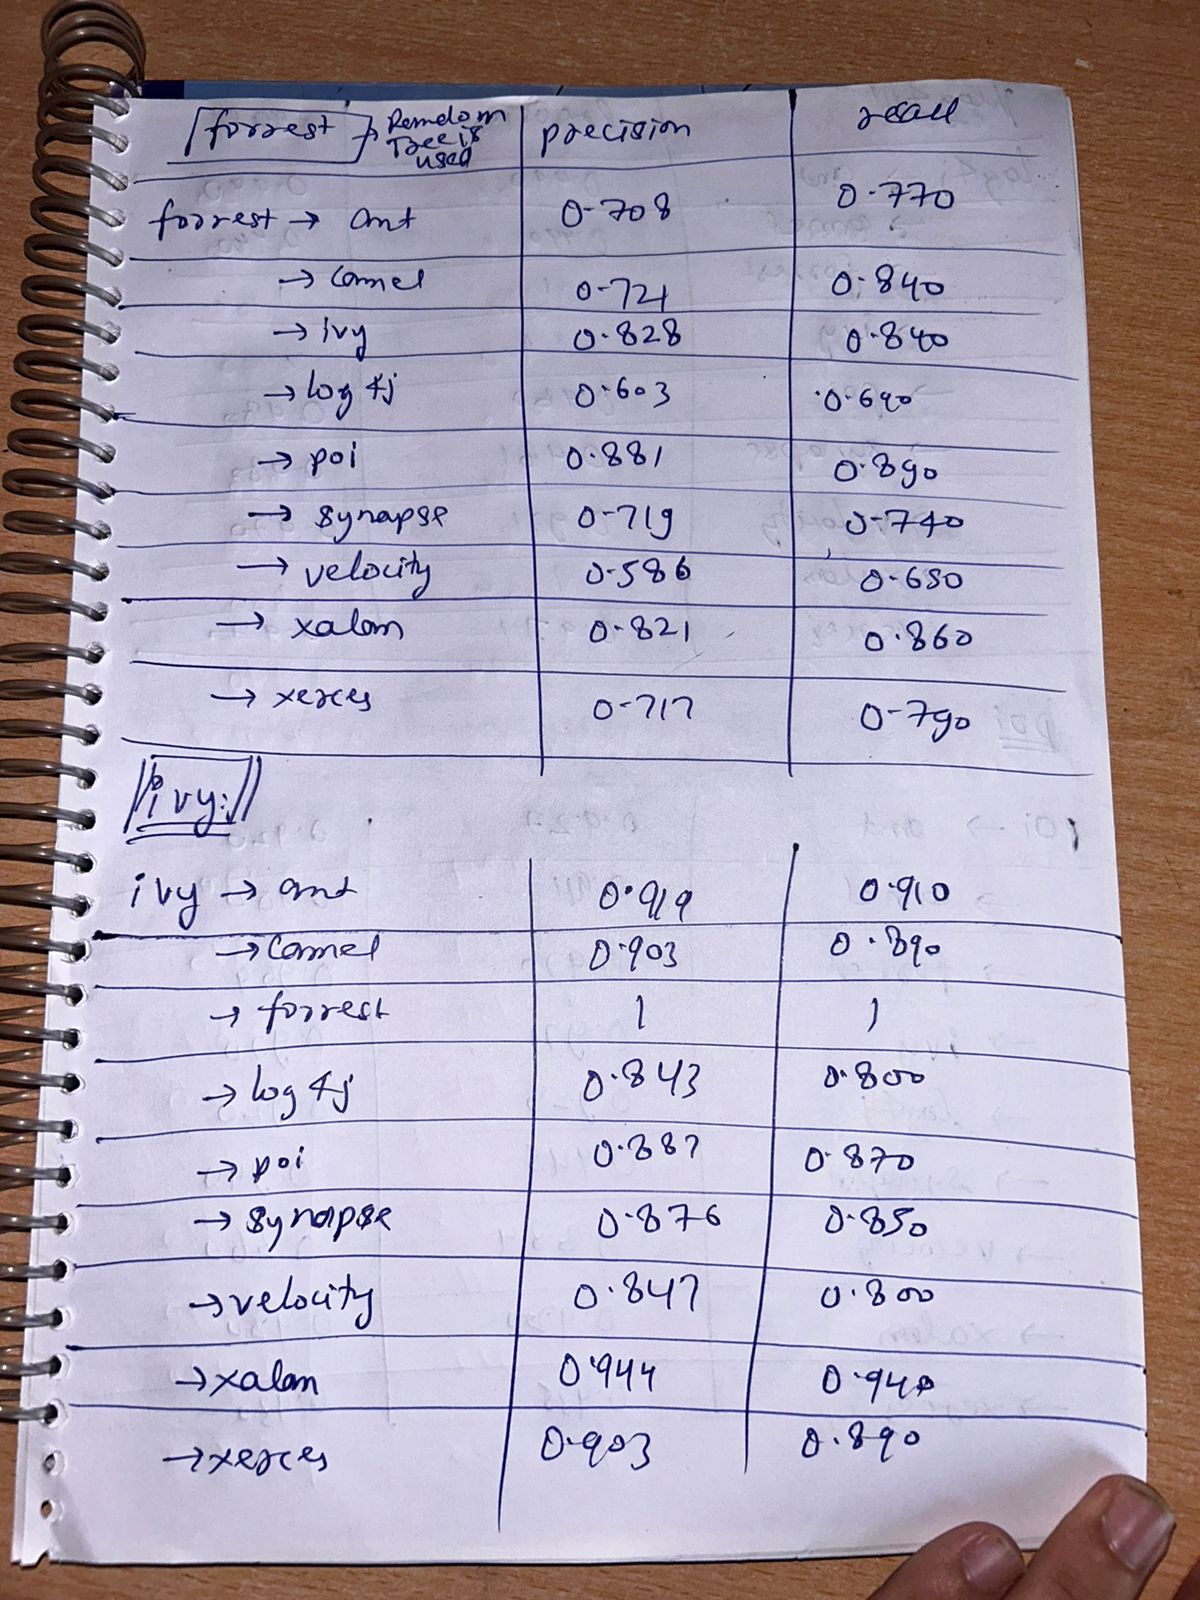 forrest → Random Tree is used precision recall
forrest → ant 0.708 0.770
→ camel 0.721 0.840
→ ivy 0.828 0.840
→ log4j 0.603 0.690
→ poi 0.881 0.890
→ synapse 0.719 0.740
→ velocity 0.586 0.680
→ xalan 0.821 0.860
→ xerces 0.717 0.790
ivy:
ivy → ant 0.919 0.910
→ camel 0.903 0.890
→ forrest 1 1
→ log4j 0.843 0.800
→ poi 0.887 0.870
→ synapse 0.876 0.850
→ velocity 0.847 0.800
→ xalan 0.944 0.940
→ xerces 0.903 0.890